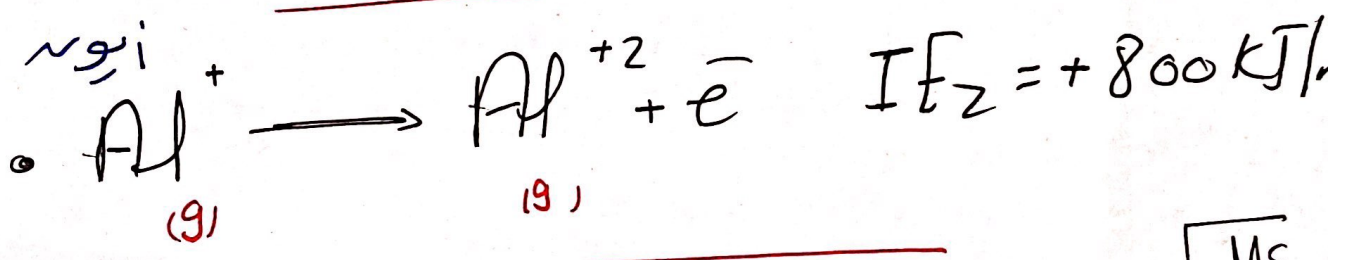 أيون
• Al⁺ (g) ⟶ Al⁺² (g) + e⁻ IE₂ = +800 KJ/.